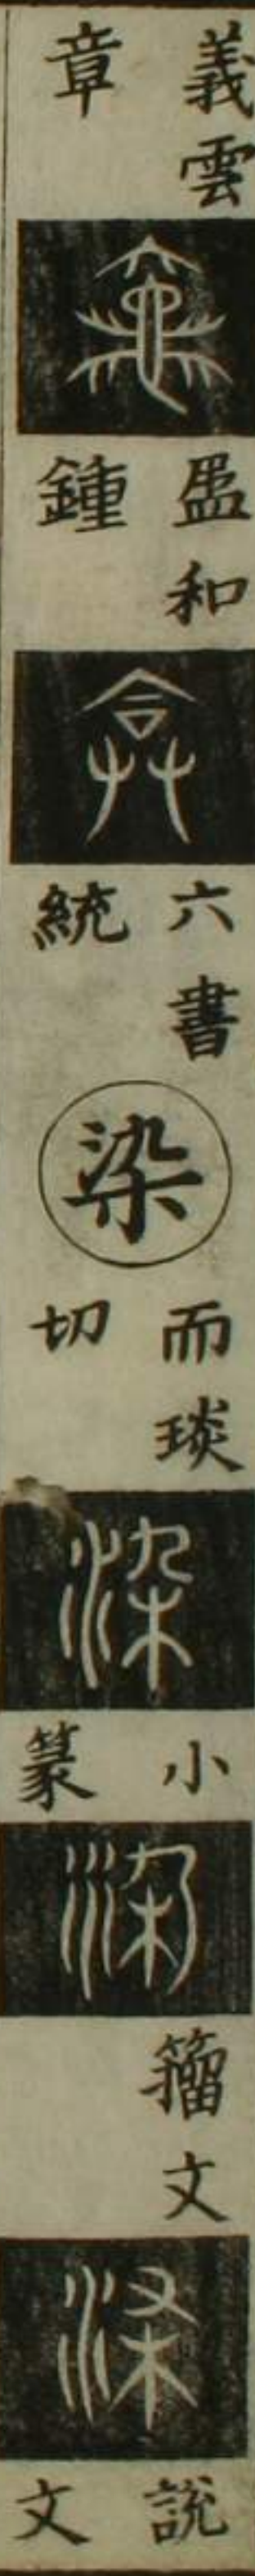 義雲章
盄和鍾
六書統
染
而琰切
小篆
籀文
說文